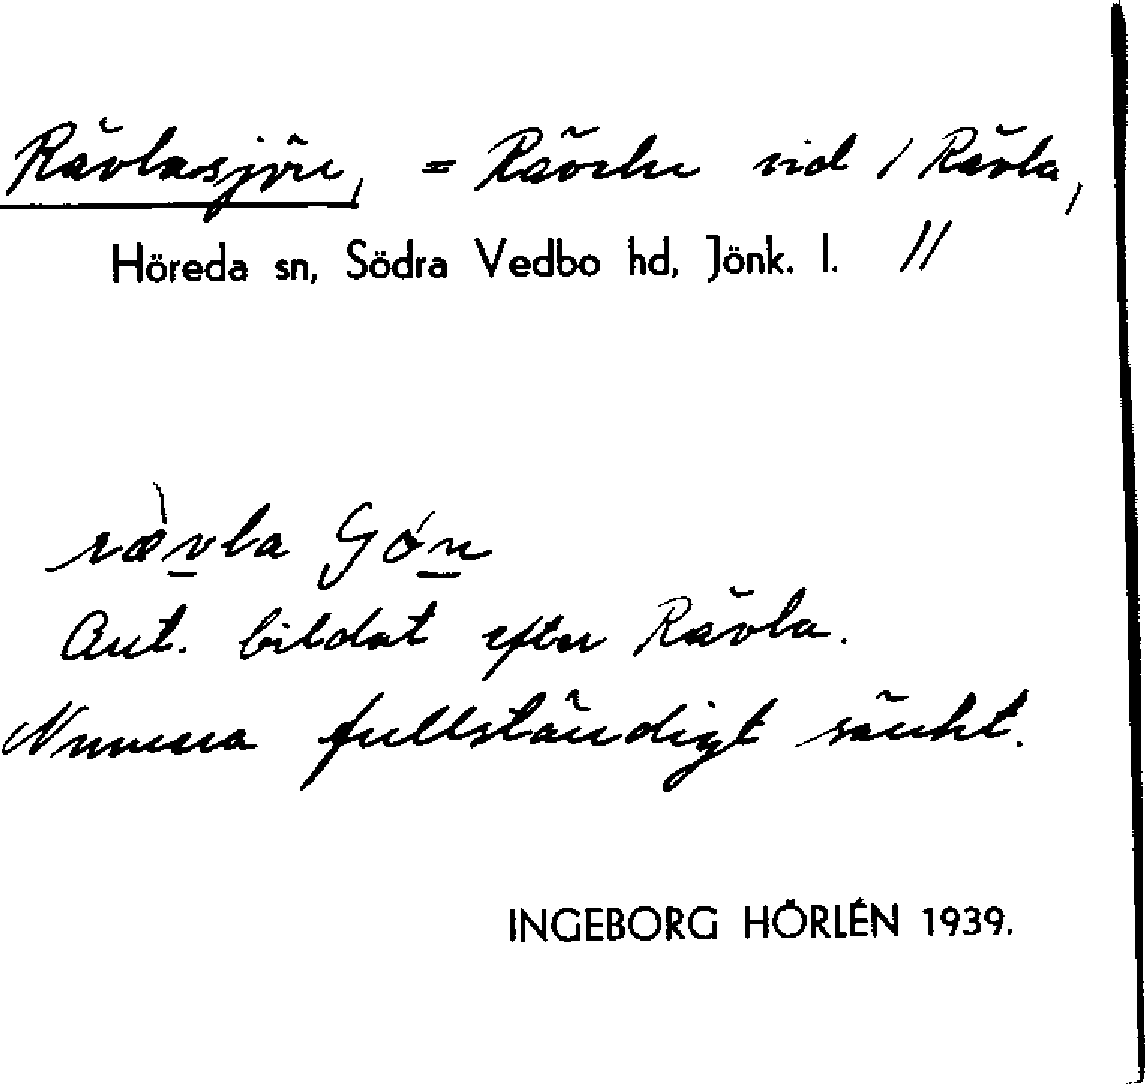 Rävlasjön, = vid / Rävla,
Höreda sn, Södra Vedbo hd, Jönk. l. //
rævla
Ant. bildat efter Rävla.
Numera fullständigt sänkt.
INGEBORG HÖRLÉN 1939.